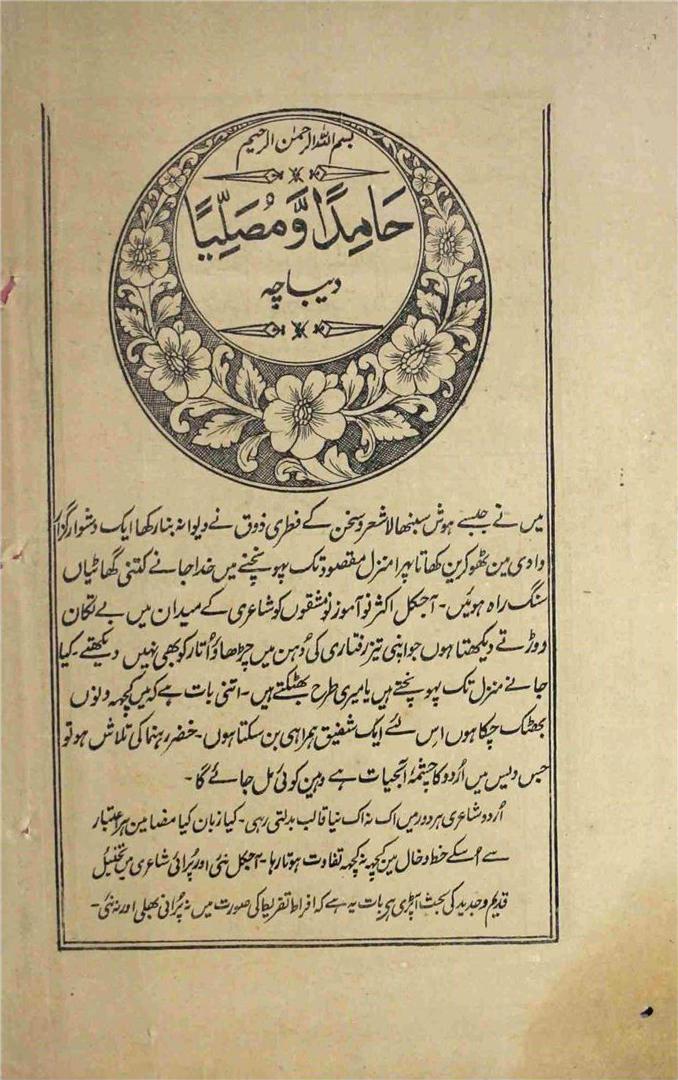 بسم اللہ الرحمٰن الرحیم
حَامِدًا وَّ مُصَلِّیًا
دیباچہ
میں نے جبسے ہوش سنبھالا شعر و سخن کے فطری ذوق نے دیوانہ بنا رکھا ایک دشوار گزار
وادی مین ٹھوکرین کھاتا پہرا منزل مقصود تک پہونچنے میں خدا جانے کتنی گھاٹیاں
سنگ راہ ہوئیں۔ آجکل اکثر نو آموز نو مشقوں کو شاعری کے میدان میں بے تکان
دوڑتے دیکھتا ہوں جو اپنی تیز رفتاری کی دُہن میں چڑھاؤ اُتار کو بھی نہیں دیکھتے۔ کیا
جانے منزل تک پہونچتے ہیں یا میری طرح بھٹکتے ہیں۔ اتنی بات ہے کہ میں کچھہ دنوں
بھٹک چکا ہوں اس لئے ایک شفیق ہمراہی بن سکتا ہوں۔ خضر رہنما کی تلاش ہو تو
جس دیس میں اُردو کا چشمۂ آبحیات ہے وہین کوئی مل جائے گا۔
اُردو شاعری ہر دور میں اک نہ اک نیا قالب بدلتی رہی۔ کیا زبان کیا مضامین ہر اعتبار
سے اُسکے خط و خال مین کچھہ نہ کچھہ تفاوت ہوتا رہا۔ آجکل نئی اور پُرانی شاعری مین تخئیل
قدیم و جدید کی بحث آپڑی ہی بات یہ ہے کہ افراط تفریط کی صورت میں نہ پُرانی بھلی اور نہ نئی۔